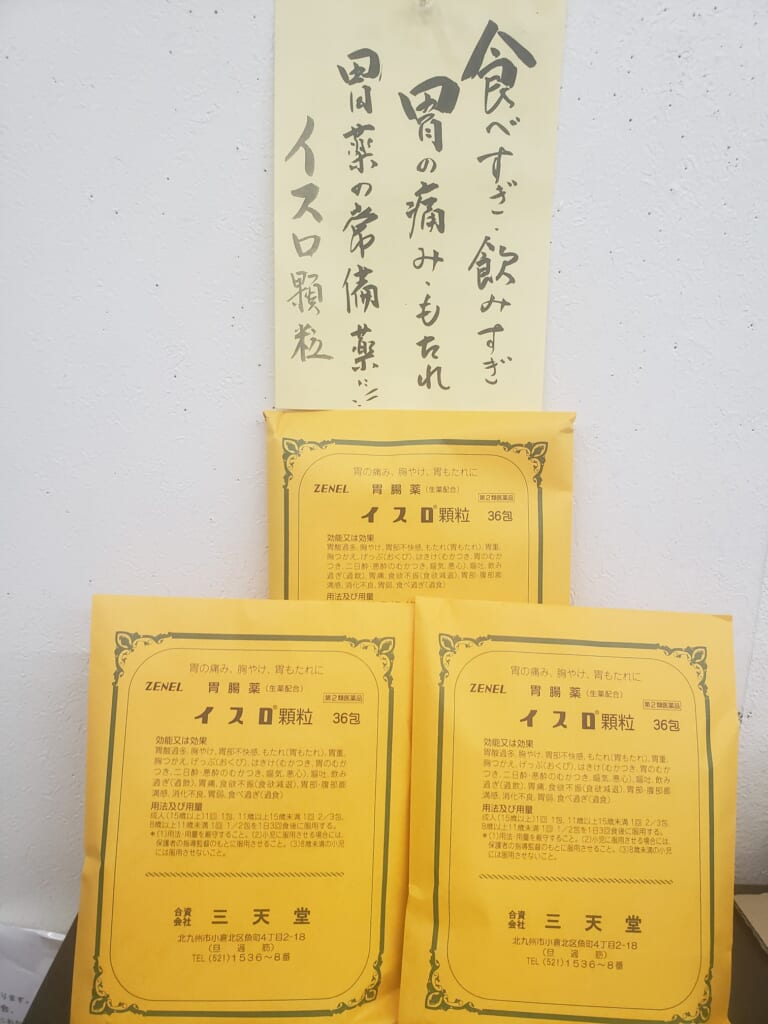 食べすぎ・飲みすぎ
胃の痛み・もたれ
胃薬の常備薬
イスロ顆粒
胃の痛み、胸やけ、胃もたれに
ZENEL 胃腸薬(生薬配合)
第2類医薬品
イスロ®顆粒 36包
効能又は効果
胃酸過多、胸やけ、胃部不快感、もたれ(胃もたれ)、胃重、
胸つかえ、げっぷ(おくび)、はきけ(むかつき、胃のむか
つき、二日酔・悪酔のむかつき、嘔気、悪心)、嘔吐、飲み
過ぎ(過飲)、胃痛、食欲不振(食欲減退)、胃部・腹部膨
満感、消化不良、胃弱、食べ過ぎ(過食)
用法及び用量
胃の痛み、胸やけ、胃もたれに
ZENEL 胃腸薬(生薬配合)
第2類医薬品
イスロ®顆粒 36包
効能又は効果
胃酸過多、胸やけ、胃部不快感、もたれ(胃もたれ)、胃重、
胸つかえ、げっぷ(おくび)、はきけ(むかつき、胃のむか
つき、二日酔・悪酔のむかつき、嘔気、悪心)、嘔吐、飲み
過ぎ(過飲)、胃痛、食欲不振(食欲減退)、胃部・腹部膨
満感、消化不良、胃弱、食べ過ぎ(過食)
用法及び用量
成人(15歳以上)1回 1包、11歳以上15歳未満1回 2/3包、
8歳以上11歳未満 1回 1/2包を1日3回食後に服用する。
*(1)用法・用量を厳守すること。(2)小児に服用させる場合には、
保護者の指導監督のもとに服用させること。(3)8歳未満の小児
には服用させないこと。
合資会社 三天堂
北九州市小倉北区魚町4丁目2-18
(旦過筋)
TEL (521) 1536〜8番
胃の痛み、胸やけ、胃もたれに
ZENEL 胃腸薬(生薬配合)
第2類医薬品
イスロ®顆粒 36包
効能又は効果
胃酸過多、胸やけ、胃部不快感、もたれ(胃もたれ)、胃重、
胸つかえ、げっぷ(おくび)、はきけ(むかつき、胃のむか
つき、二日酔・悪酔のむかつき、嘔気、悪心)、嘔吐、飲み
過ぎ(過飲)、胃痛、食欲不振(食欲減退)、胃部・腹部膨
満感、消化不良、胃弱、食べ過ぎ(過食)
用法及び用量
成人(15歳以上)1回 1包、11歳以上15歳未満1回 2/3包、
8歳以上11歳未満 1回 1/2包を1日3回食後に服用する。
*(1)用法・用量を厳守すること。(2)小児に服用させる場合には、
保護者の指導監督のもとに服用させること。(3)8歳未満の小児
には服用させないこと。
合資会社 三天堂
北九州市小倉北区魚町4丁目2-18
(旦過筋)
TEL (521) 1536〜8番
ります。